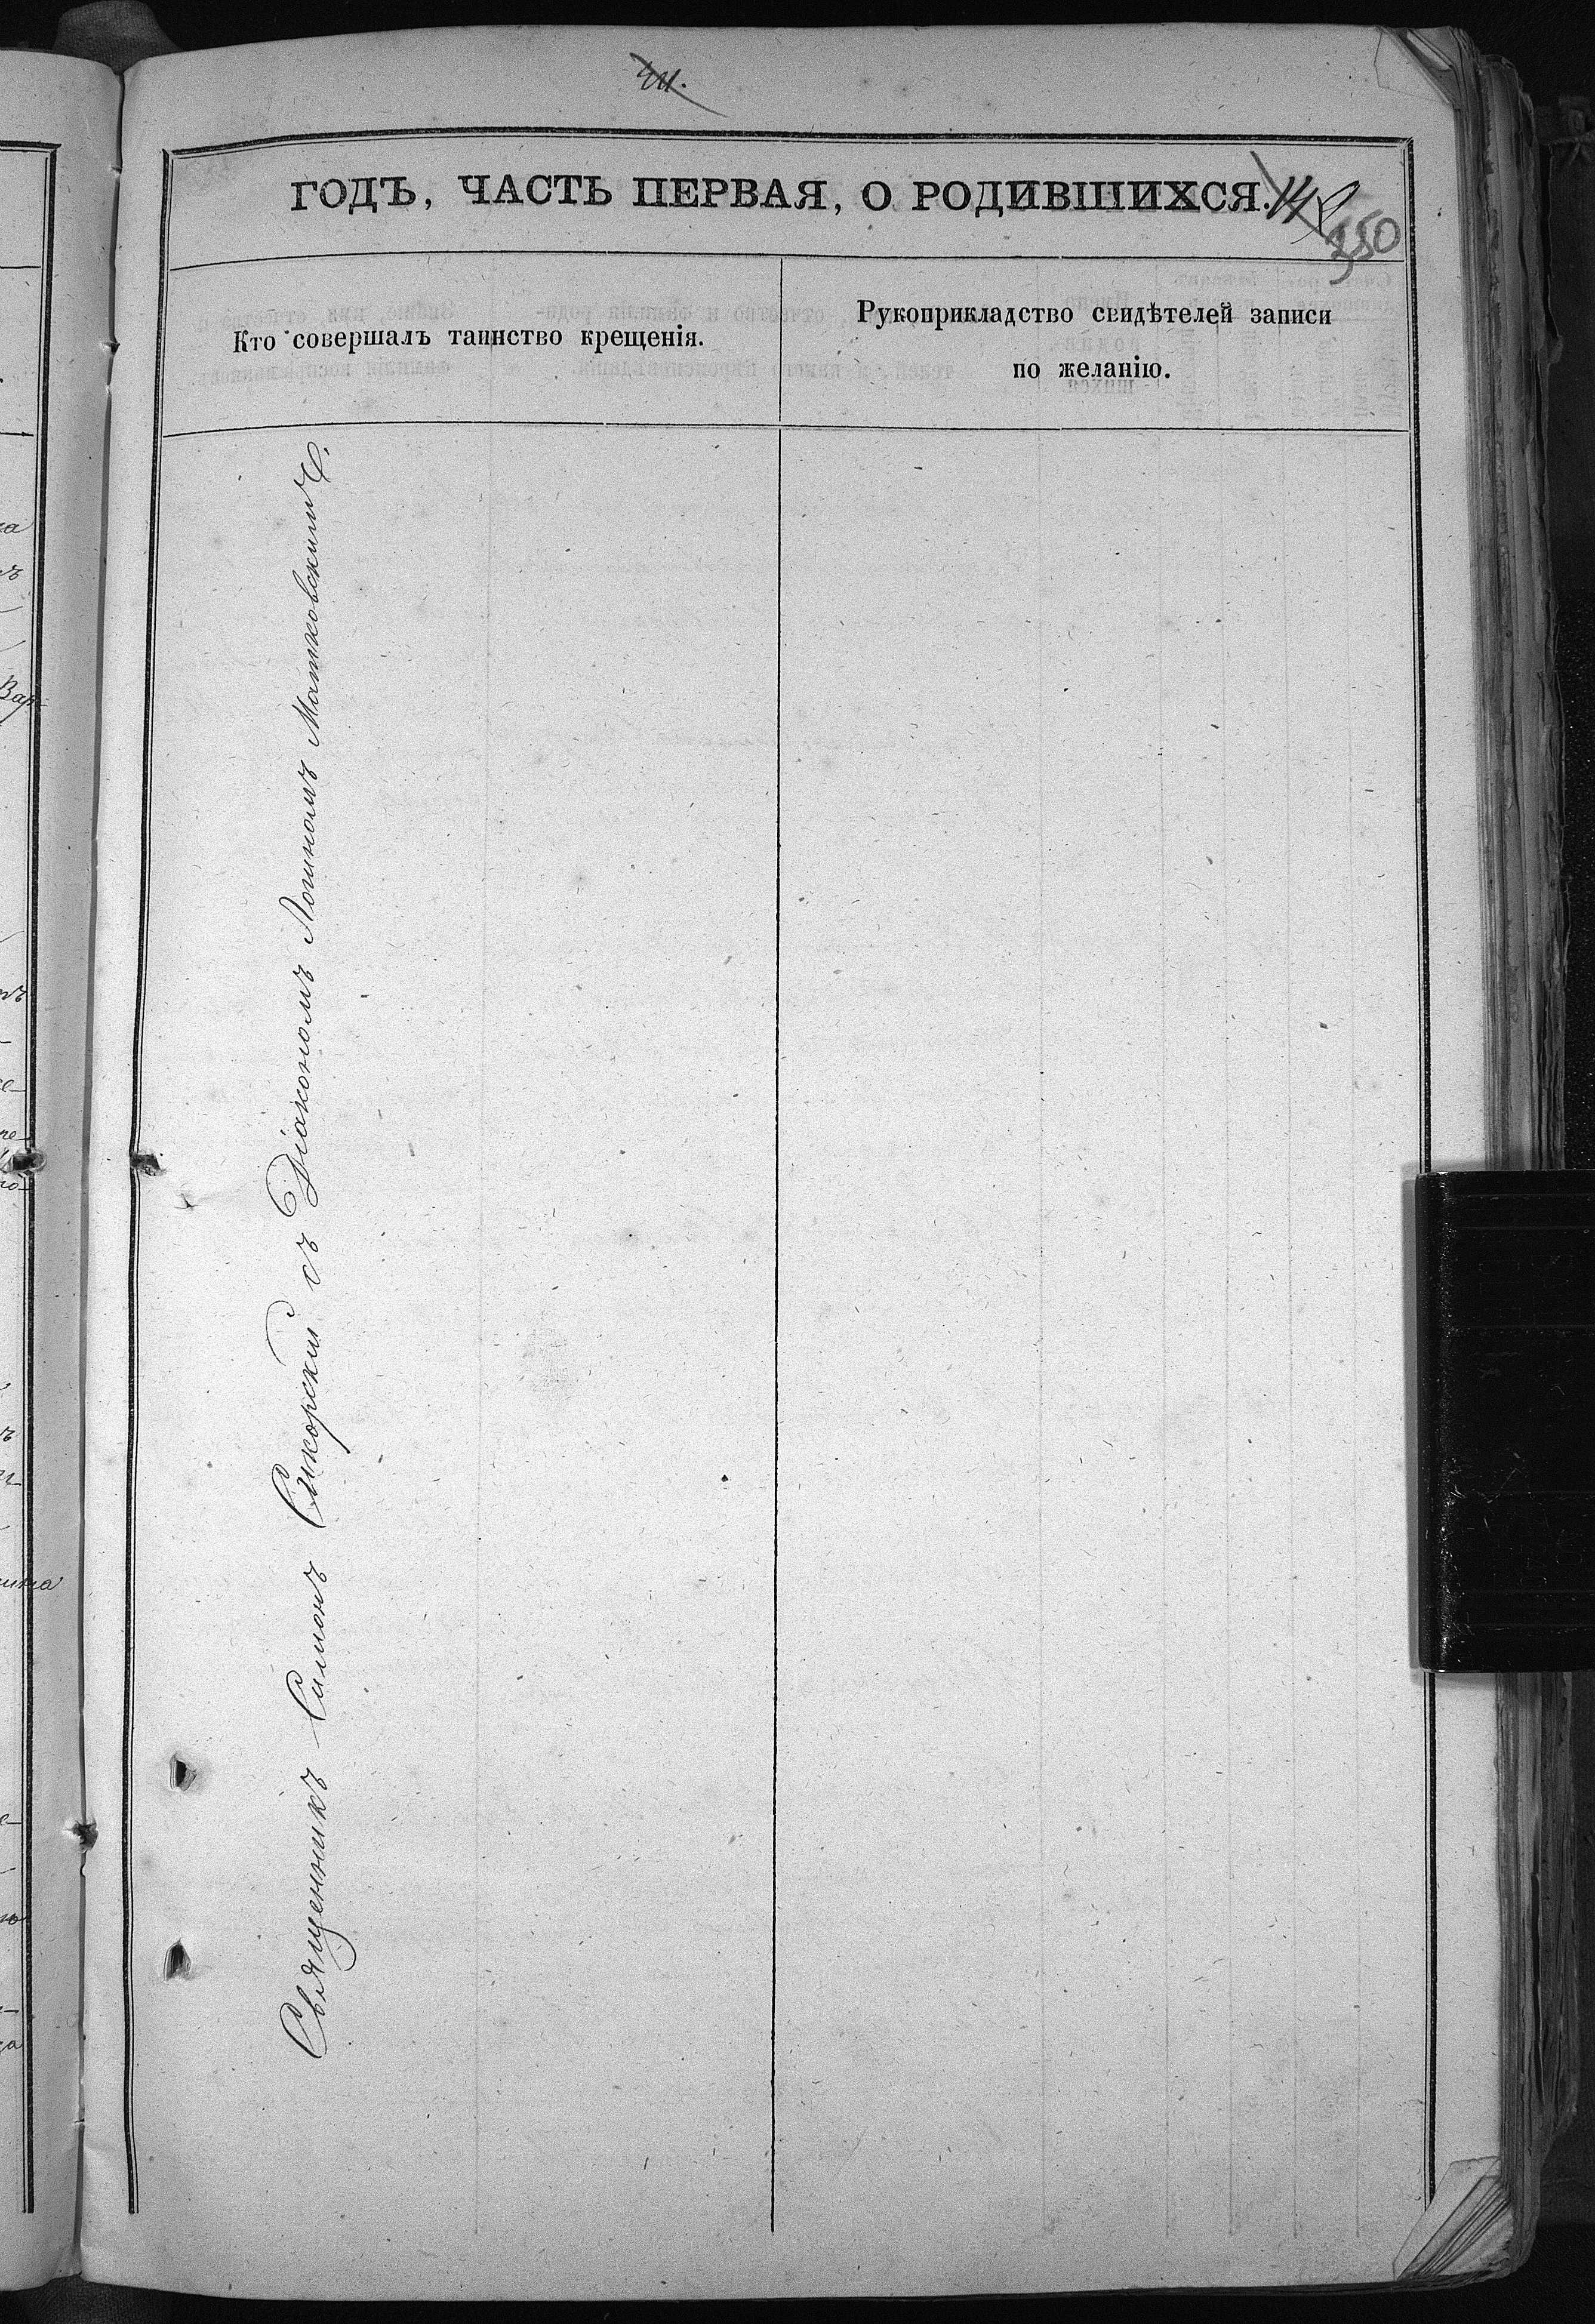 ГОДЪ, ЧАСТЬ ПЕРВАЯ, О РОДИВШИХСЯ.
350
Кто совершалъ таинство крещенія.
Рукоприкладство свидѣтелей записи
по желанію.
Священникъ Симонъ Сикорскій съ Діакономъ Логиномъ Матковскимъ.